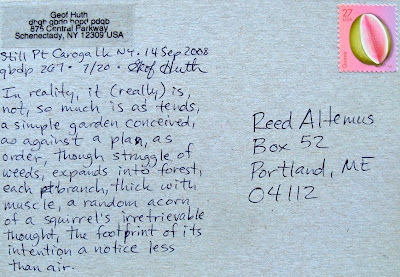 Geof Huth
dhqh qbnn hopd pdqb
875 Central Parkway
Schenectady, NY 12309 USA
Still Pt Caroga Lk NY • 14 Sep 2008
qbdp 207 • 7/20 • Geof Huth
In reality, it (really) is,
not, so much is as tends,
a simple garden conceived,
as against a plan, as
order, though struggle of
weeds, expands into forest,
each branch, thick with
muscle, a random acorn
of a squirrel's irretrievable
thought, the footprint of its
intention a notice less
than air.
27
USA
Guava
Reed Altemus
Box 52
Portland, ME
04112